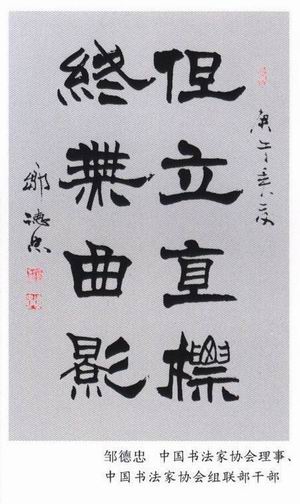 庚午
但立直標
終無曲影
鄒德忠
邹德忠 中国书法家协会理事、
中国书法家协会组联部干部